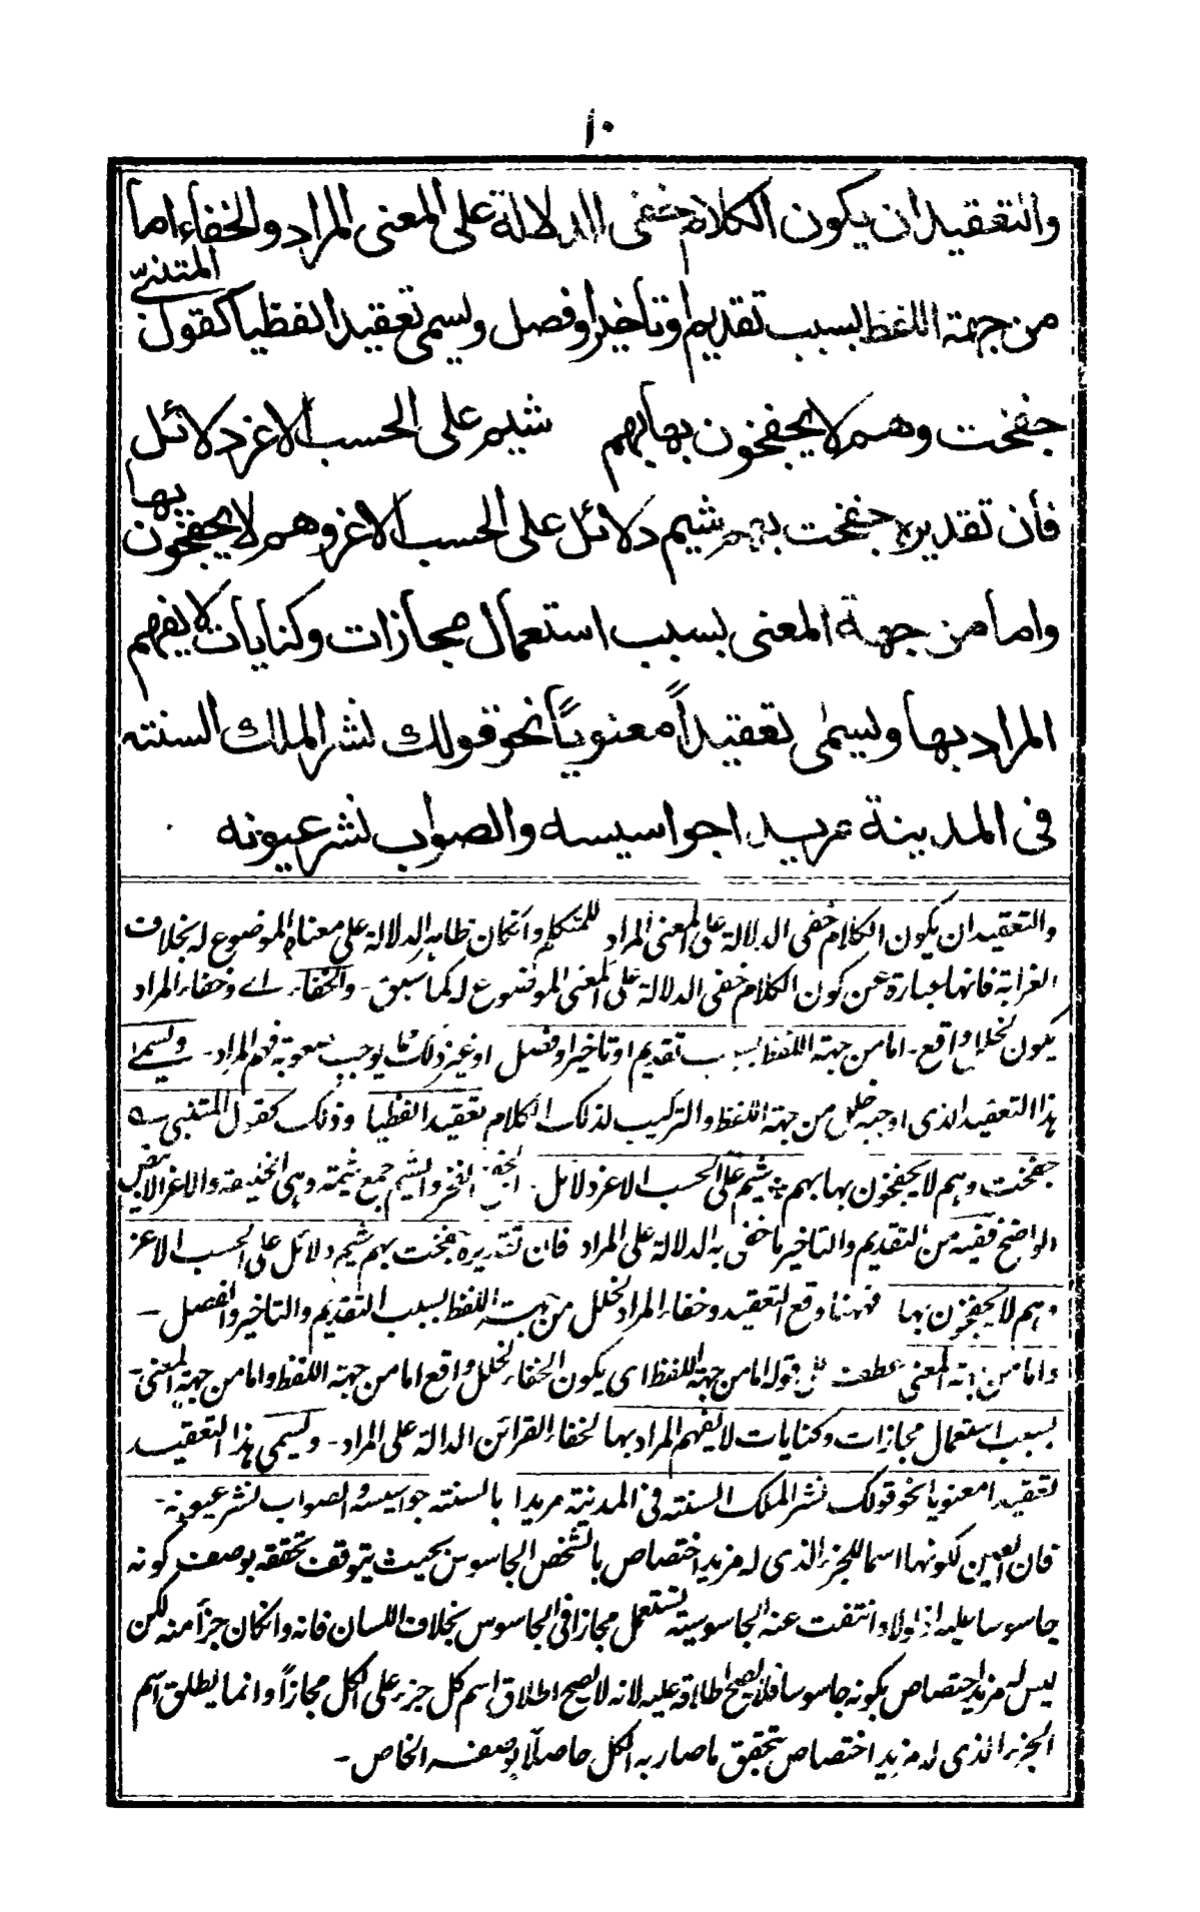 ١٠
والتعقيد ان يكون الكلام خفى الدلالة على المعنى المراد والخفاء اما
من جهة اللفظ بسبب تقديم او تأخير او فصل ويسمى تعقيدا لفظيا كقول المتنبى
جفخت وهم لا يجفخون بها بهم شيم على الحسب الاغر دلائل
فأن تقديره جفخت بهم شيم دلائل على الحسب الاغر وهم لا يجفخون بها
واما من جهة المعنى بسبب استعمال مجازات وكنايات لا يفهم
المراد بها ويسمى تعقيداً معنوياً نحو قولك نشر الملك السنته
فى المدينة مريدا جواسيسه والصواب نشر عيونه
والتعقيد ان يكون الكلام خفى الدلالة على المعنى المراد للمتكلم وانكان ظاهر الدلالة على معناه الموضوع له بخلاف
الغرابة فانها عبارة عن كون الكلام خفى الدلالة على المعنى الموضوع له كما سبق - والخفاء اے وخفاء المراد
يكون لخلل واقع - اما من جهة اللفظ بسبب تقديم او تاخير او فصل او غير ذلك مما يوجب صعوبة فهم المراد - ويسمى
هذا التعقيد الذى اوجبه خلل من جهة اللفظ والتركيب لذلك الكلام تعقيدا لفظيا وذلك كقول المتنبى سه
جفخت وهم لا يجفخون بها بهم شيم على الحسب الاغر دلائل - الجفخ الفخر والشيم جمع شيمة وهى الخليقة والاغر الابيض
الواضح ففيه من التقديم والتاخير ما خفى به الدلالة على المراد فان تقديره جفخت بهم شيم دلائل على الحسب الاغر
وهم لا يجفخون بها فههنا وقع التعقيد وخفاء المراد لخلل من جهة اللفظ بسبب التقديم والتاخير والفصل -
واما من جهة المعنى عطف على قوله اما من جهة اللفظ اى يكون الخفاء لخلل واقع اما من جهة اللفظ واما من جهة المعنى -
بسبب استعمال مجازات وكنايات لا يفهم المراد بها لخفاء القرائن الدالة على المراد - ويسمى هذا التعقيد
تعقيدا معنويا نحو قولك نشر الملك السنته فى المدينة مريدا بالسنته جواسيسه والصواب نشر عيونه -
فان العين لكونها اسما للجزء الذى له مزيد اختصاص بالشخص الجاسوس بحيث يتوقف تحققه بوصف كونه
جاسوسا عليه اذ لولاه انتفت عنه الجاسوسية تستعمل مجازا فى الجاسوس بخلاف اللسان فانه وانكان جزأ منه لكن
ليس له مزيد اختصاص بكونه جاسوسا فلا يصح اطلاقه عليه لانه لا يصح اطلاق اسم كل جزء على الكل مجازاً وانما يطلق اسم
الجزء الذى له مزيد اختصاص بتحقق ما صار به الكل حاصلاً بوصفه الخاص -